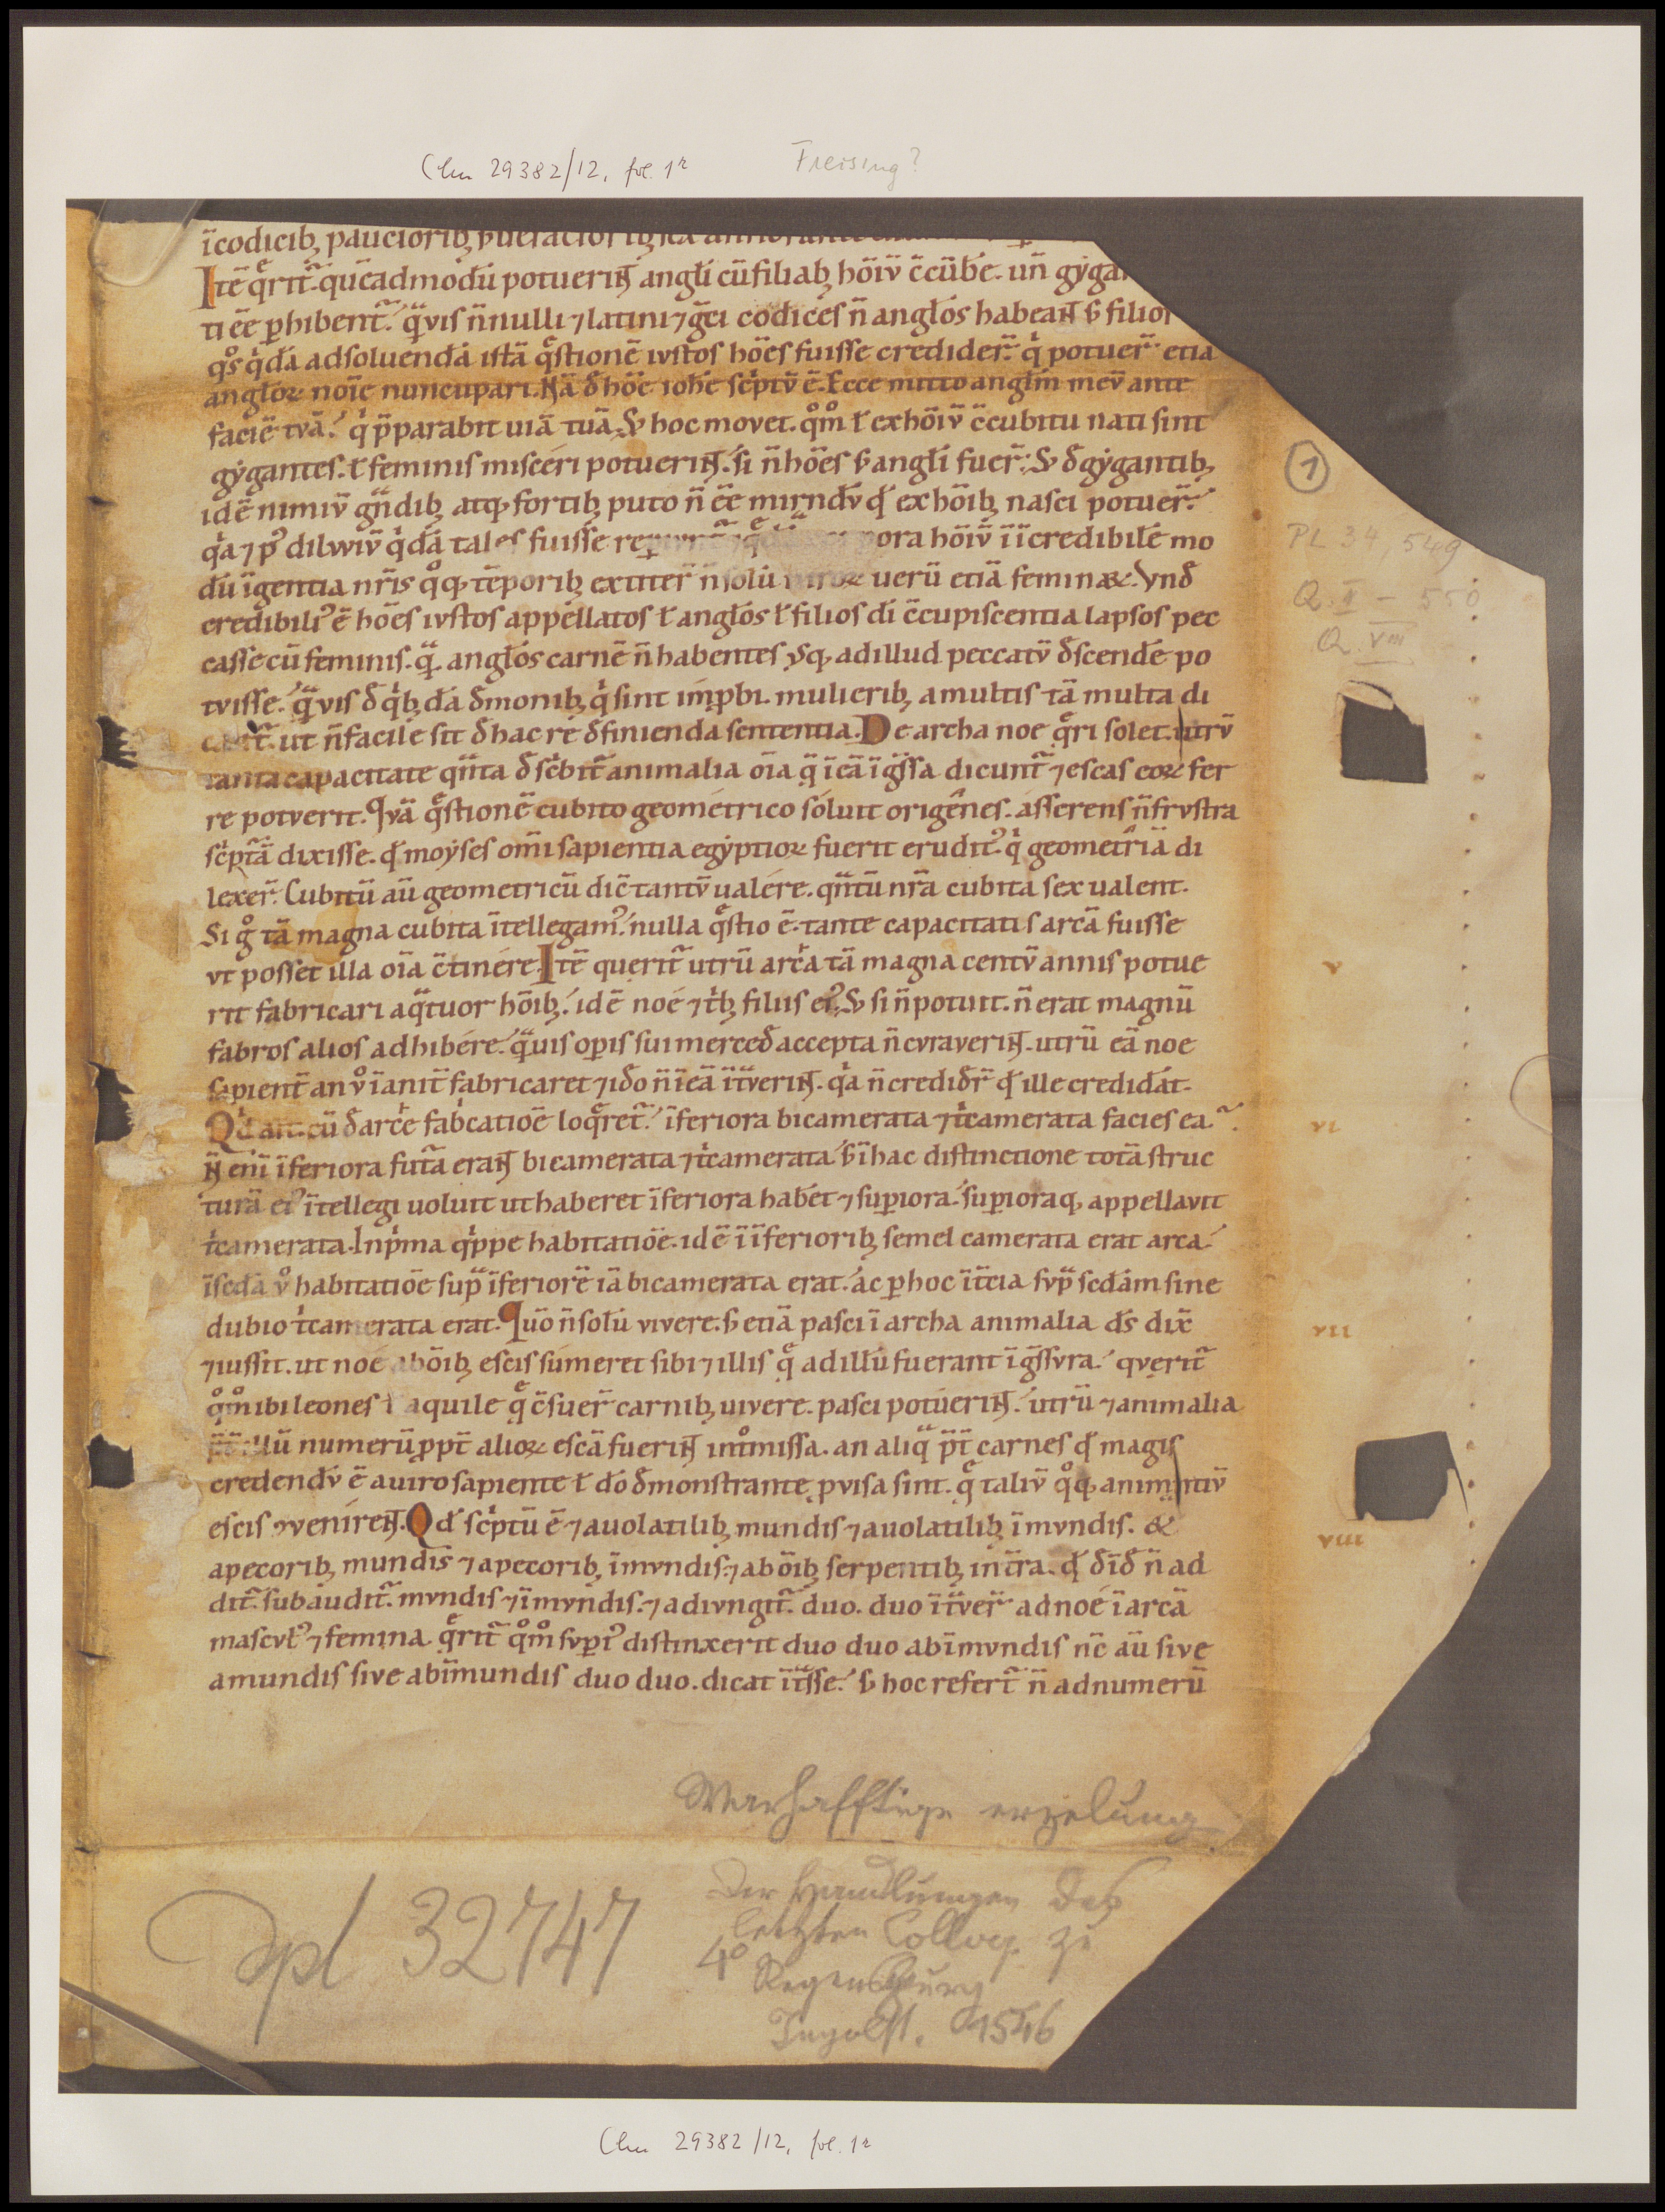 Clm 29382/12, fol. 1r Freising?
ĩcodicib; pauciorib;
Itē q̊rit̃. quēadmodū potuerin̄t angłi cū filiab; hōiū c̄cūbe. un̄ gẏgan
ti ēe ꝑhibent̃. q̃vis n̄nulli ⁊ latini ⁊ g̃ci codices n̄ angłos habean̄t s̄ filios
q̊s q̇dā ad soluendā istā q̊stionē iustos hōes fuisse credider̄. q̇ potuer̄ etiā
angłoꝝ noīe nuncupari. Nā đ hōe iohē sc̓ptū ē. Ecce mitto angłm meū ante
faciē tuā. q̇ p̄parabit uiā tuā. S; hoc movet. q̊m̊ ł ex hōiū c̄cubitu nati sint
gẏgantes. ł feminis misceri potuerin̄t. si n̄ hōes s̄ angłi fuer̄. S; đ gẏgantib;
idē nimiū g̃ndib; atq; fortib; puto n̄ ēe mirndū qđ ex hōib; nasci potuer̄.
q̇a ⁊ pꝰ diluviū q̇dā tales fuisse ora hōiū ĩ ĩcredibilē mo
dū ĩgentia nr̄is q̊q; tēporib; extiter̄ n̄ solū viroꝝ uerū etiā feminaꝝ. Vnđ
credibiliꝰ ē hōes iustos appellatos ł angłos ł filios đi c̄cupiscentia lapsos pec
casse cū feminis. q̃. angłos carnē n̄ habentes usq; ad illud peccatū đscendē po
tuisse. q̃vis đ q̇b;dā đmonib; q̇ sint imꝓbi. mulierib; a multis tā multa di
cant̃. ut n̄ facile sit đ hac re đfinienda sententia. De archa noe q̊ri solet. utrū
tanta capacitate q̃nta đsc̓bit̃ animalia oīa q̃ ĩ eā ĩg̃ssa dicunt̃ ⁊ escas eoꝝ fer
re potuerit. Quā q̊stionē cubito geometrico soluit origenes. asserens n̄ frustra
sc̓ptā dixisse. qđ moẏses om̄i sapientia egẏptioꝝ fuerit eruditꝰ. q̇ geometriā di
lexer̄. Cubitū aū geometricū dic̄ tantū ualére. q̃ntū nr̄a cubita sex ualent.
Si g̊ tā magna cubita ĩtellegamꝰ. nulla q̊stio ē. tante capacitatis arcā fuisse
ut posset illa oīa c̄tinére. Itē querit̃ utrū arc̓a tā magna centū annis potue
rit fabricari a q̃tuor hōib;. idē noé ⁊ tb̓; filiis eiꝰ. S; si n̄ potuit. n̄ erat magnū
fabros alios adhibére. q̃uis oꝑis sui merceđ accepta n̄ curaverin̄t. utrū eā noe
sapient̄ an v̊ ĩanit̄ fabricaret ⁊ iđo n̄ ĩ eā ĩt̃verin̄t. q̇a n̄ crediđr̄ qđ ille credidāt.
Qđ ait. cū đ arc̓e fab̓catiōe loq̊ret̃. ĩferiora bicamerata ⁊ tc̓amerata facies eā.
N̄ enī ĩferiora futā eran̄t bicamerata ⁊ tc̓amerata s̄ ĩ hac distinctione totā struc
turā eiꝰ ĩtellegi uoluit ut haberet ĩferiora habēt ⁊ suꝑiora. suꝑioraq; appellavit
tc̓amerata. In p̓ma q̓ppe habitatiōe. idē ĩ ĩferiorib; semel camerata erat arca.
ĩ scđa v̊ habitatiōe sup̃ ĩferiorē iā bicamerata erat. ac ꝑ hoc ĩ tc̄ia sup̃ scđam sine
dubio tc̓amerata erat. Quō n̄ solū vivere. s̄ etiā pasci ĩ archa animalia đs dix̄
⁊ iussit. ut noé ab ōib; escis súmeret sibi ⁊ illis q̊ ad illū fuerant ĩg̃ssura. querit̃
q̊m̊ ibi leones ł aquile q̊ c̄suer̄ carnib; uivere. pasci potúerin̄t. utrū ⁊ animalia
p̄t̄ illū numerū ꝓpt̄ alioꝝ escā fuerin̄t intm̊issa. an aliq̃ p̄t̄ carnes qđ magis
credendū ē a uiro sapiente ł đo đmonstrante ꝓvisa sint. q̊ taliū q̊q; animantiū
escis ꝯveníren̄t. Qđ sc̓ptū ē ⁊ a volatilib; mundis ⁊ a volatilib; ĩmundis. &
a pecorib; mundis ⁊ a pecorib; ĩmundis. ⁊ ab ōib; serpentib; in tr̄a. qđ đīđ n̄ ad
dit̃. subáudit̃. mundis ⁊ ĩmundis. ⁊ adiungit̃. duo. duo ĩt̃ver̄ ad noé ĩ arcā
masculꝰ ⁊ femina. q̊rit̃ q̊m̊ suꝑiꝰ distinxerit duo duo ab ĩmundis nc̄ aū sive
a mundis sive ab ĩmundis duo duo. dicat ĩt̃sse. s̄ hoc refert̃ n̄ ad numerū
1
PL 34, 549
Q. II – 550
Q. VIII
v
vi
vii
viii
Warhafftige erzelung
Der Handlungen des
letzten Colloq. zu
4° Regenspurg
Ingolst. 1546
Dpl 32747
Clm 29382/12, fol. 1r